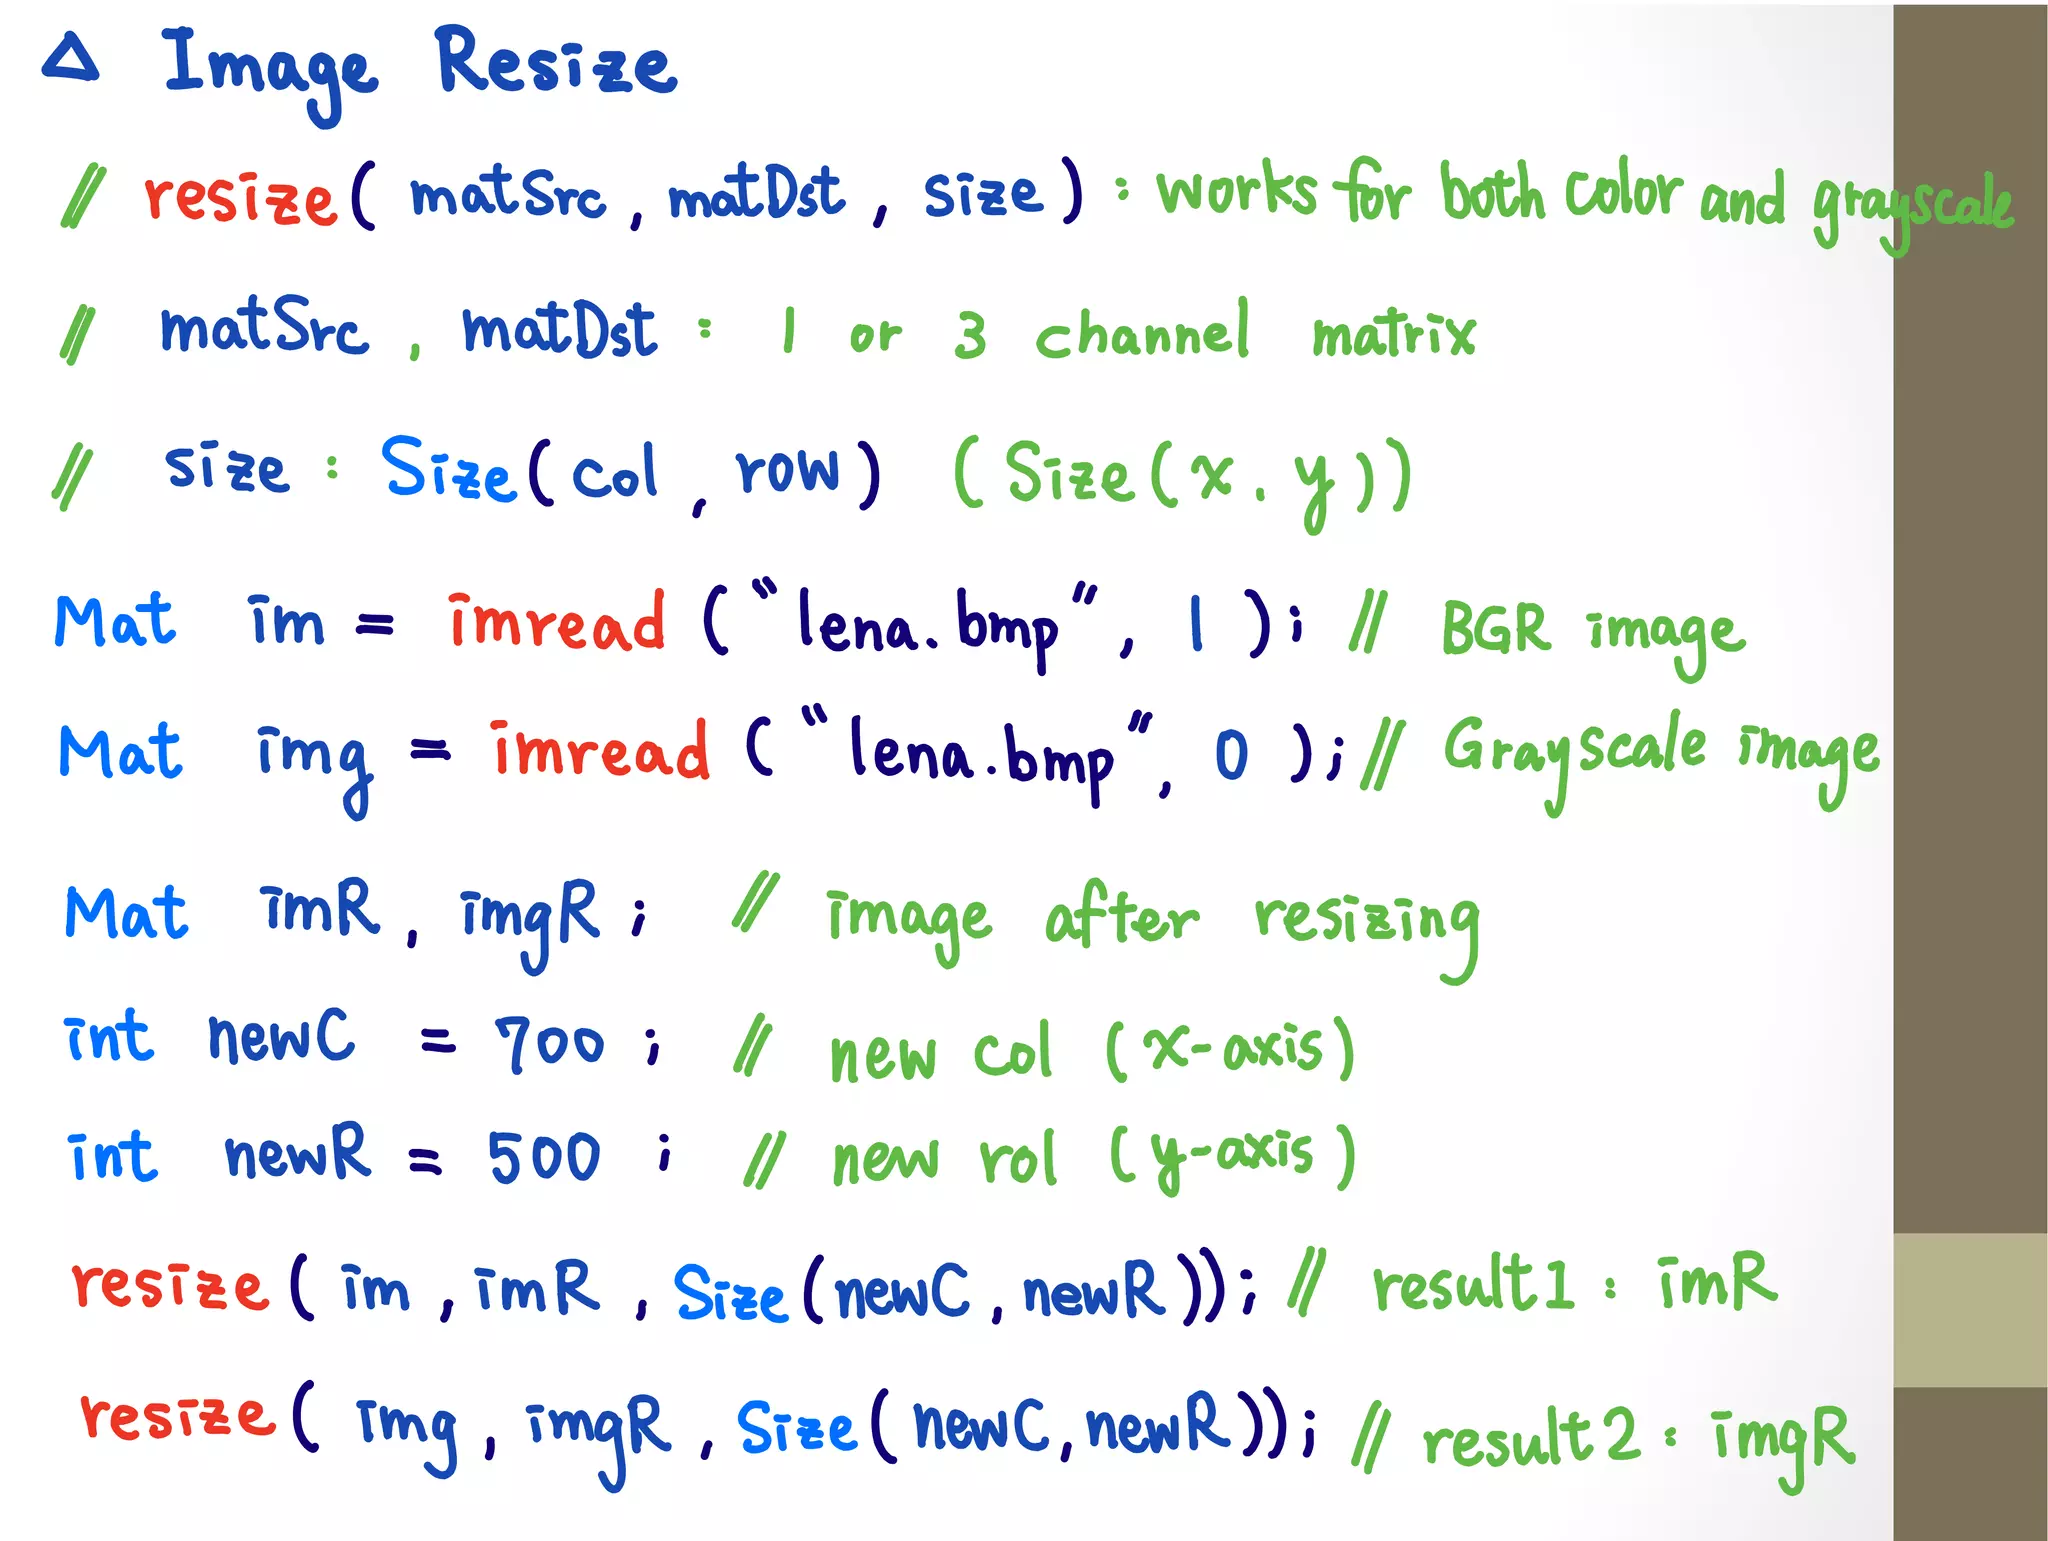 △ Image Resize
// resize( matSrc, matDst, size) : works for both color and grayscale
// matSrc, matDst : 1 or 3 channel matrix
// size : Size(col, row) (Size(x.y))
Mat im = imread ("lena.bmp", 1 ); // BGR image
Mat img = imread ("lena.bmp", 0 ); // Grayscale image
Mat imR, imgR ; // image after resizing
int newC = 700 ; // new col (x-axis)
int newR = 500 ; // new rol (y-axis)
resize( im, imR, Size(newC, newR)); // result1 : imR
resize( img, imgR, Size(newC, newR)); // result2 : imgR